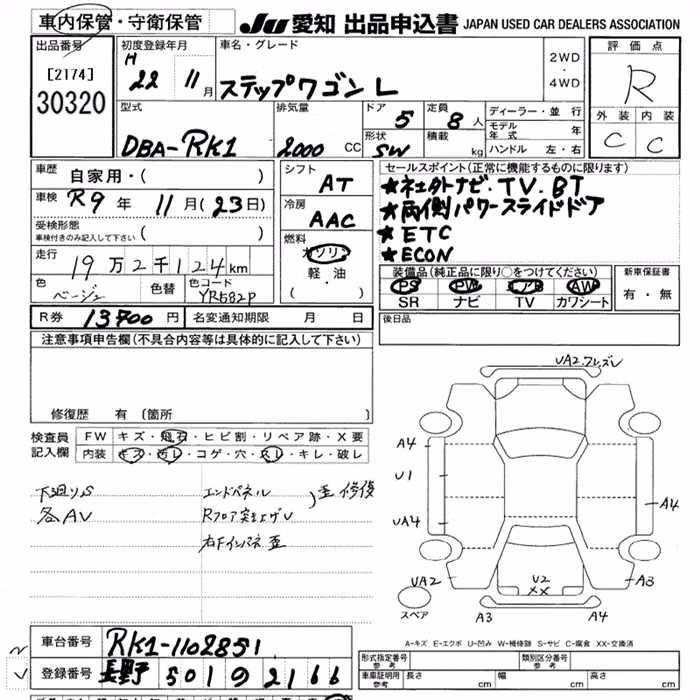 車内保管・守衛保管 JU 愛知 出品申込書 JAPAN USED CAR DEALERS ASSOCIATION
出品番号 初度登録年月 車名・グレード 評価点
[2174] H 22 11月 ステップワゴン L 2WD・4WD R
30320
型式 排気量 ドア 5 定員 8人 ディーラー・並行 外装 内装
DBA-RK1 2000 CC 形状 SW 積載 kg モデル年式 年 C C
ハンドル 左・右
車歴 自家用・( ) シフト AT セールスポイント(正常に機能するものに限ります)
車検 R9年 11月(23日) 冷房 AAC ★社外ナビ・TV・BT
受検形態 ( ) ★両側パワースライドドア
車検付きのみ記入して下さい ★ETC
走行 19万2千124km 燃料 ガソリン ★ECON
軽・油 装備品(純正品に限り○をつけてください) 新車保証書
色 ベージュ 色替 色コード YR582P ( ・ ) PS PW エアB AW 有・無
SR ナビ TV カワシート
R券 13700円 名変通知期限 月 日 後日品
注意事項申告欄(不具合内容等は具体的に記入して下さい)
修復歴 有 [箇所 ]
検査員 FW キズ・飛石・ヒビ割・リペア跡・X要
記入欄 内装 キズ・汚レ・コゲ・穴・スレ・キレ・破レ
下廻りS エンドパネル 歪 修復
各AV Rフロア突上ゲU
右Fインパネ歪
UA2.フレズレ
A4
U1
UA4 A4
UA2 U2 A3
XX
スペア A3 A4
A-キズ E-エクボ U-凹み W-補修跡 S-サビ C-腐食 XX-交換済
車台番号 RK1-1102851 形式指定番号 参考 類別区分番号 参考
登録番号 長野 501 の 2166 車車証明用 参考 長さ cm 幅 cm 高さ cm